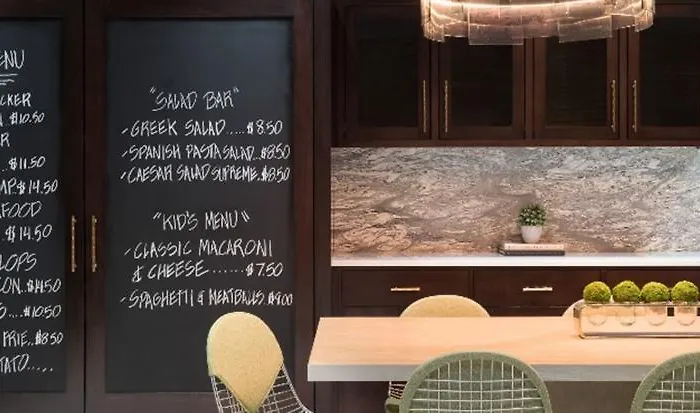 ENU
CKER
N $10.50
R
..$11.50
MP..$14.50
AFOOD
..$14.50
LOPS
CON..$14.50
S....$10.50
FRIE..$8.50
TATO.....
"SALAD BAR"
-GREEK SALAD.....$8.50
-SPANISH PASTA SALAD..$8.50
-CAESAR SALAD SUPREME..$8.50
"KID'S MENU"
-CLASSIC MACARONI
& CHEESE.......$7.50
-SPAGHETTI & MEATBALLS..$9.00